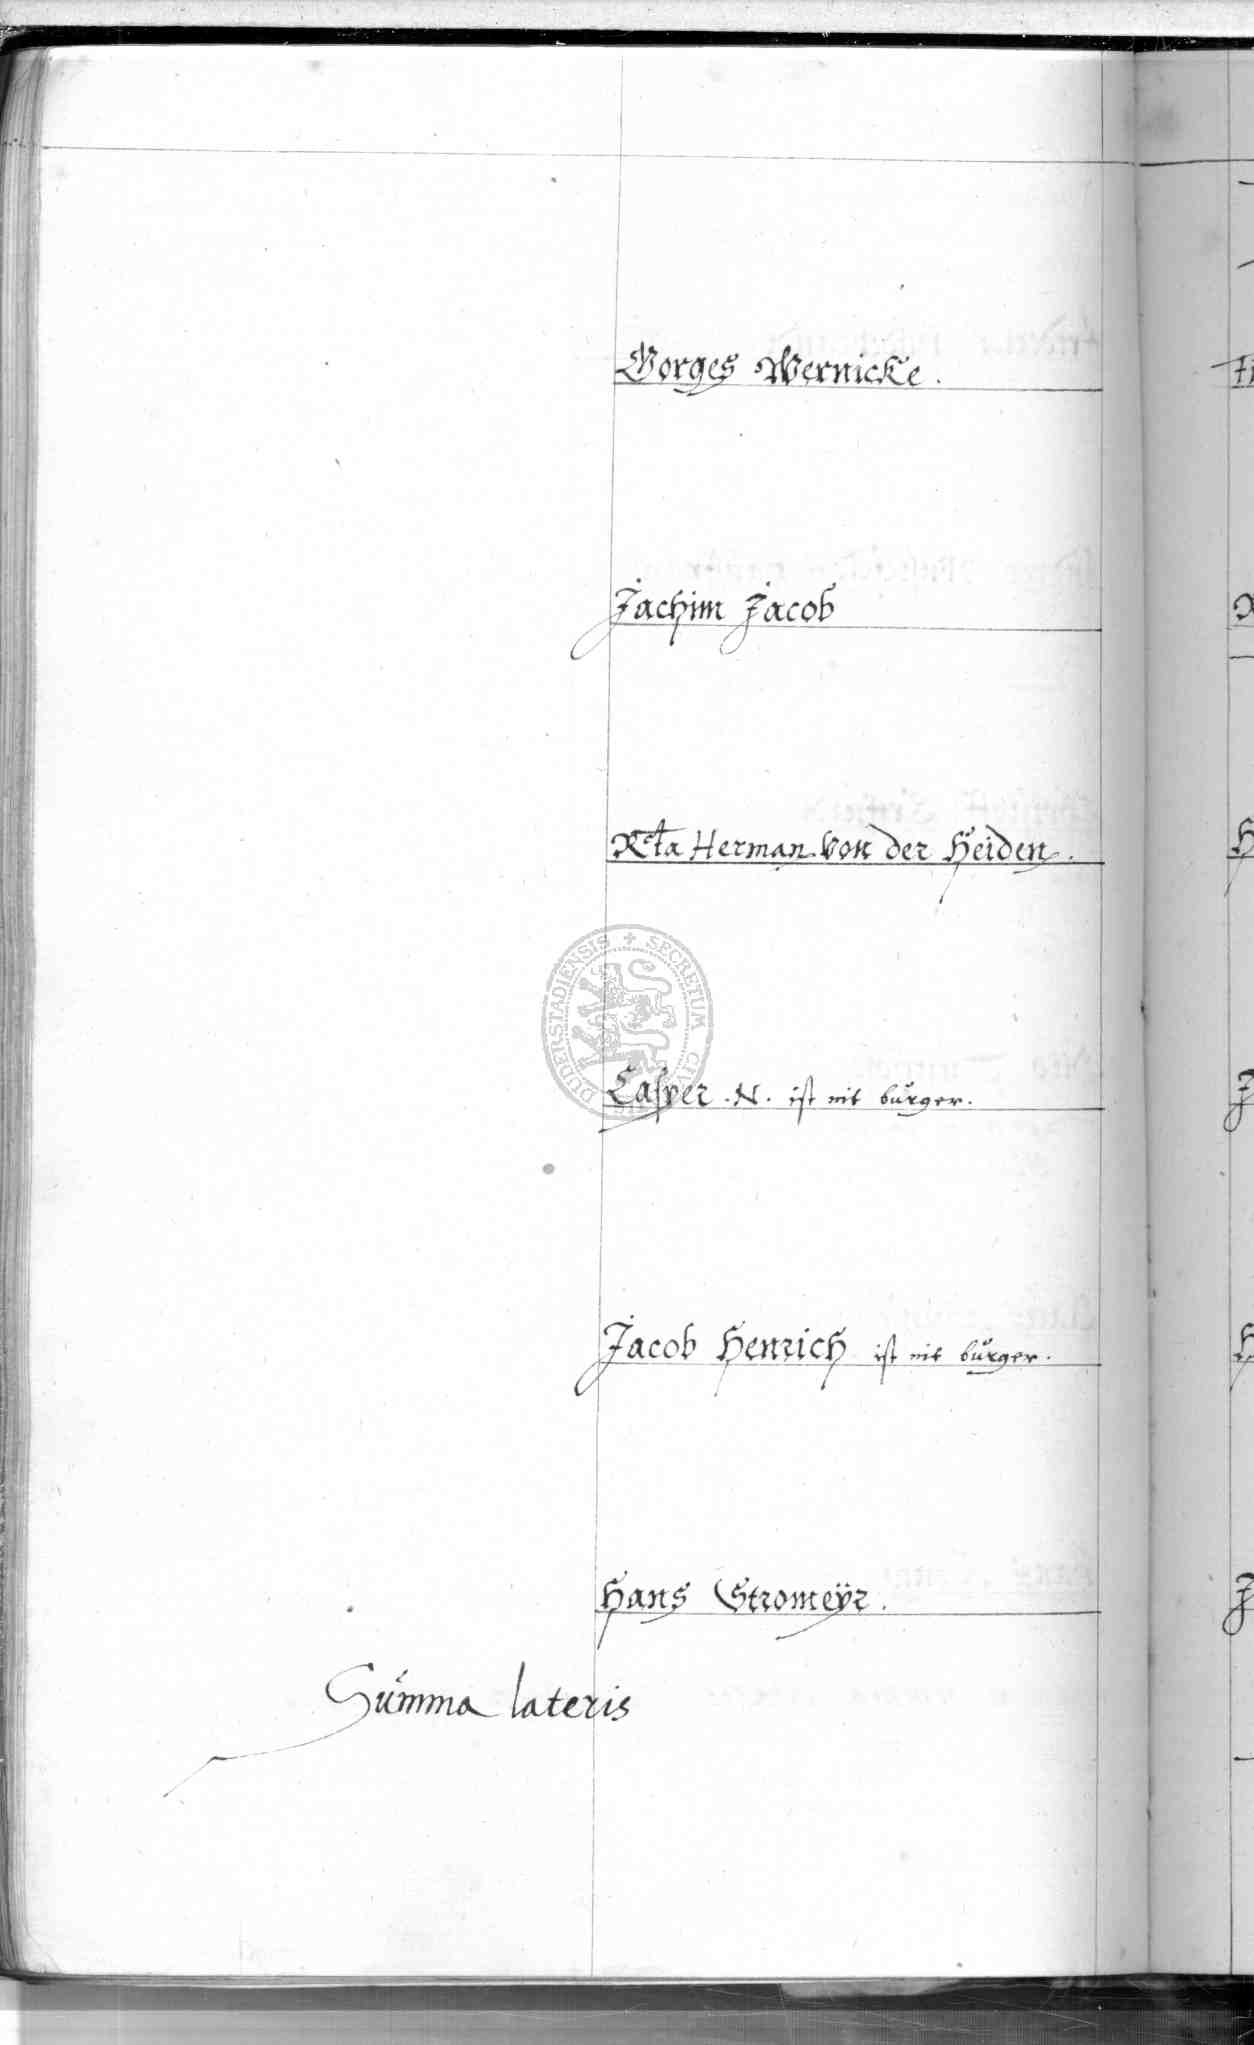 Gorges Wernicke.
Jachim Jacob
Rcta Herman von der Heiden.
Casper .N. ist nit burger.
Jacob Henrich ist nit burger.
Hans Stromeÿr.
Summa lateris
SECRETUM CIVI DUDERSTADIENSIS